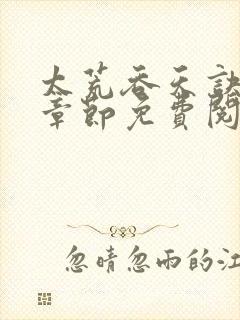 太荒吞天诀
章節免費閱
忽晴忽雨的江